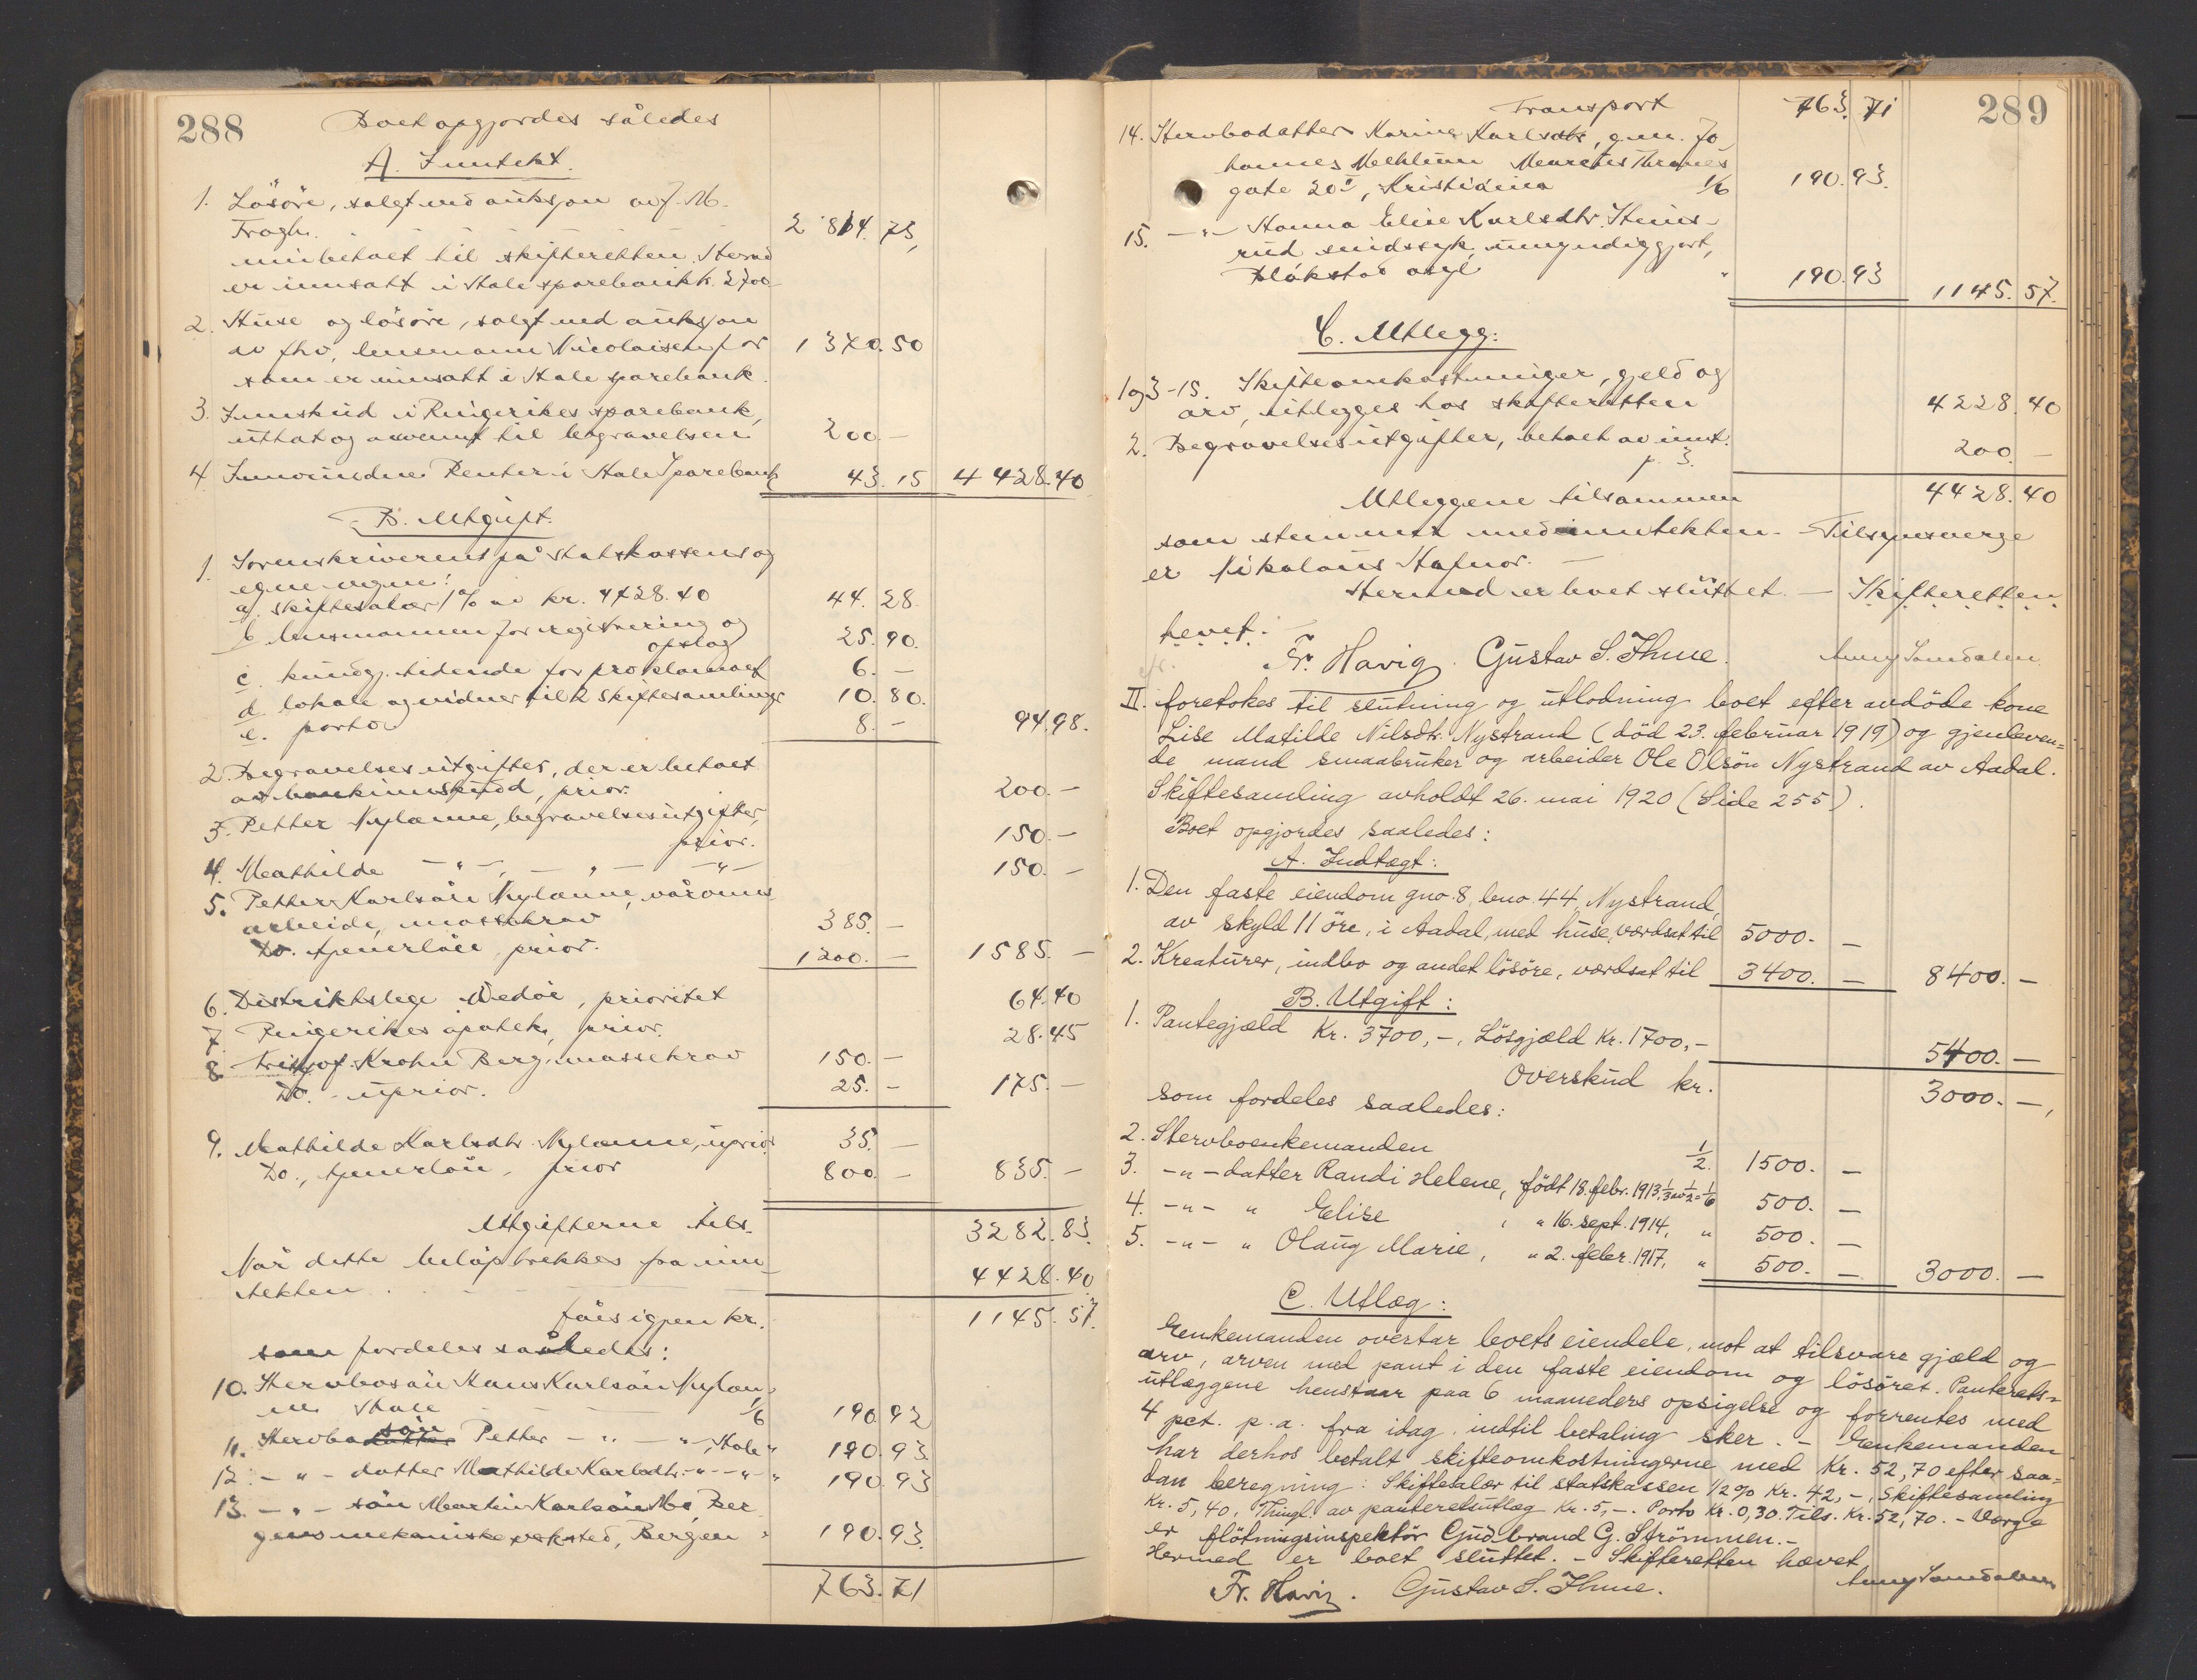 288
Boet opgjordes således
A. Inntekt.
1. Lösöre, solgt ved auksjon av J. M.
Frogh. 2 814. 75,
innbetalt til skifteretten. Herav
er innsatt i Hole sparebank k. 2700
2. Huse og lösöre, solgt ved auksjon
av fhv. lensmann Nicolaisen for 1 370. 50
som er innsatt i Hole sparebank.
3. Innskud i Ringerikes sparebank,
uttat og anvent til begravelsen 200. —
4. Innvundne Renter i Hole Sparebank 43. 15 4 428. 40
B. Utgift.
1. Sorenskriveren på statskassens og
egne vegne:
a. skiftesalær 1% av kr. 4428. 40 44. 28.
b. lensmannen for registrering og
opslag 25. 90.
c. kunngj. tidende for proklamaet 6. —
d. lokale og vidner til 2 skiftesamlinger 10. 80.
e. porto 8. — 94. 98.
2. Begravelsesutgifter, der er betalt
av bankinnskud, prior. 200. —
3. Petter Nylænne, begravelsesutgifter,
prior. 150. —
4. Mathilde — " —, — " — — " — 150. —
5. Petter Karlsön Nylænne, våronns
arbeide, massekrav 385. —
Do. tjenerlön, prior. 1200. — 1585. —
6. Distriktslege Wedöe, prioritet 64. 40
7. Ringerikes apotek, prior. 28. 45
8. Fritjof Krohn Berg, massekrav 150. —
Do. - uprior. 25. — 175. —
9. Mathilde Karlsdtr. Nylænne, uprior. 35. —
Do., tjenerlön, prior 800. — 835. —
Utgifterne tils. 3282. 83.
Når dette belöp trekkes fra inn-
tekten 4428. 40
fåes igjen kr. 1145. 57.
som fordeles således:
10. Stervbosön Hans Karlsön Nylæn-
ne Hole 1/6 190. 92
11. Stervbosön Petter — " — " —, Hole " 190. 93
12. — " — datter Mathilde Karlsdtr. — " — " — " 190. 93
13. — " — sön Martin Karlsön Mo, Ber
gens mekaniske verksted, Bergen " 190. 93.
763. 71
289
Transport 763. 71
14. Stervbodatter Karine Karlsdtr, gm. Jo
hannes Mehlum Marcus Thranes
gate 20 II, Kristiania 1/6 190. 93.
15. — " — Hanna Elise Karlsdtr. Stens-
rud sindssyk, umyndiggjort,
Blakstad asyl " 190. 93 1145. 57.
C. Utlegg:
1 og 3-15. Skifteomkostninger, gjeld og
arv, utlegges hos skifteretten 4228. 40
2. Begravelsesutgifter, betalt av innt.
p. 3. 200. —
Utleggene tilsammen 4428. 40
som stemmer med inntekten. Tilsynsverge
er Nikolaus Hafnor. —
Hermed er boet sluttet. — Skifteretten
hevet. —
Fr. Havig. Gustav S. Ihme.
II. foretokes til slutning og utlodning boet efter avdöde kone
Lise Matilde Nilsdtr. Nystrand (död 23. februar 1919) og gjenleven=
de mand smaabruker og arbeider Ole Olsön Nystrand av Aadal.
Skiftesamling avholdt 26. mai 1920 (Side 255).
Boet opgjordes saaledes:
A. Indtægt:
1. Den faste eiendom gno. 8, bno. 44, Nystrand,
av skyld 11 öre, i Aadal, med huse, værdsat til 5000. —
2. Kreaturer, indbo og andet lösöre, værdsat til 3400. — 8400. —
B. Utgift:
1. Pantegjæld Kr. 3700,-. Lösgjæld Kr. 1700,- 5400. —
Overskud kr. 3000. —,
som fordeles saaledes:
2. Stervboenkemanden 1/2. 1500. —
3. — " — datter Randi Helene, född 18. febr. 1913, 1/3 av 1/2 = 1/6 500. —
4. — " — " Elise , " 16. sept. 1914, " 500. —
5. — " — " Olaug Marie, " 2. febr. 1917, " 500. — 3000. —
C. Utlæg:
Enkemanden overtar boets eiendele, mot at tilsvare gjæld og
arv, arven med pant i den faste eiendom og lösöret. Panterets-
utlæggene henstaar paa 6 maaneders opsigelse og forrentes med
4 pct. p. a. fra idag, indtil betaling sker. - Enkemanden
har derhos betalt skifteomkostningerne med Kr. 52,70 efter saa=
dan beregning: Skiftesalær til statskassen 1/2% Kr. 42,-, Skiftesamling
Kr. 5,40, Thingl. av panteretsutlæg Kr. 5,-. Porto Kr. 0,30. Tils. Kr. 52,70. - Verge
er flötningsinspektör Gudbrand G. Strömmen. -
Hermed er boet sluttet. - Skifteretten hævet.
Fr. Havig. Gustav S. Ihme.